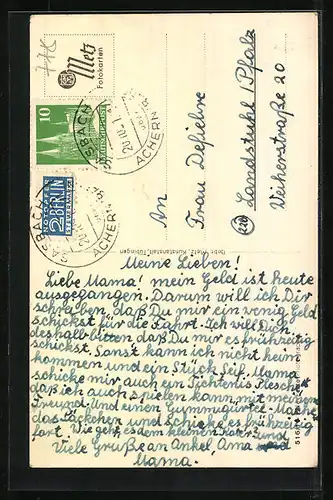 Metz
Fotokarten
10
NOTOPFER
2 BERLIN
STEUERMARKE
SASBACH
ACHERN
SASBACH
ACHERN
An
Frau Defiehre
Landstuhl /Pfalz
Weiherstraße 20
Gebr. Metz, Kunstanstalt, Tübingen
Meine Lieben!
Liebe Mama! mein Geld ist heute
ausgegangen. Darum will ich Dir
schreiben, daß Du mir ein wenig Geld
schickst für die Fahrt. Ich will Dich
deshalb bitten daß Du mir es frühzeitig
schickst. Sonst kann ich nicht heim
kommen und ein Stück Seif. Mama
schicke mir auch ein
daß ich auch spielen kann, mit meinem
Freund und einen Gummigürtel. Mache
das Päckchen und schicke es frühzeitig
fort. Wie geht es dem kleinen Kater? und
Viele Grüße an Onkel, Oma und
Mama.